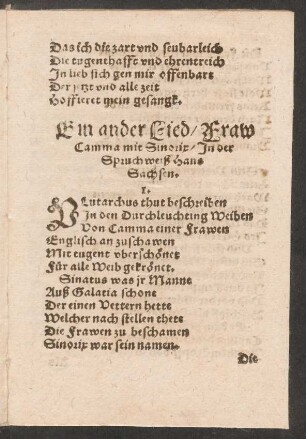 Das ich die zart vnd seuharleich
Die tugenthafft vnd ehrentreich
In lieb sich gen mir offenbart
Der jetzt vnd alle zeit
Hoffieret mein gesangk.
Ein ander Lied / Fraw
Camma mit Sinorix / In der
Spruchweiß Hans
Sachsen.
1.
PLutarchus thut beschreiben
In den Durchleuchting Weiben
Von Camma einer Frawen
Englisch an zuschawen
Mit tugent vberschönet
Für alle Weib gekrönet.
Sinatus was jr Manne
Auß Galatia schone
Der einen Vettern hette
Welcher nach stellen thete
Die Frawen zu beschamen
Sinorix war sein namen.
Die